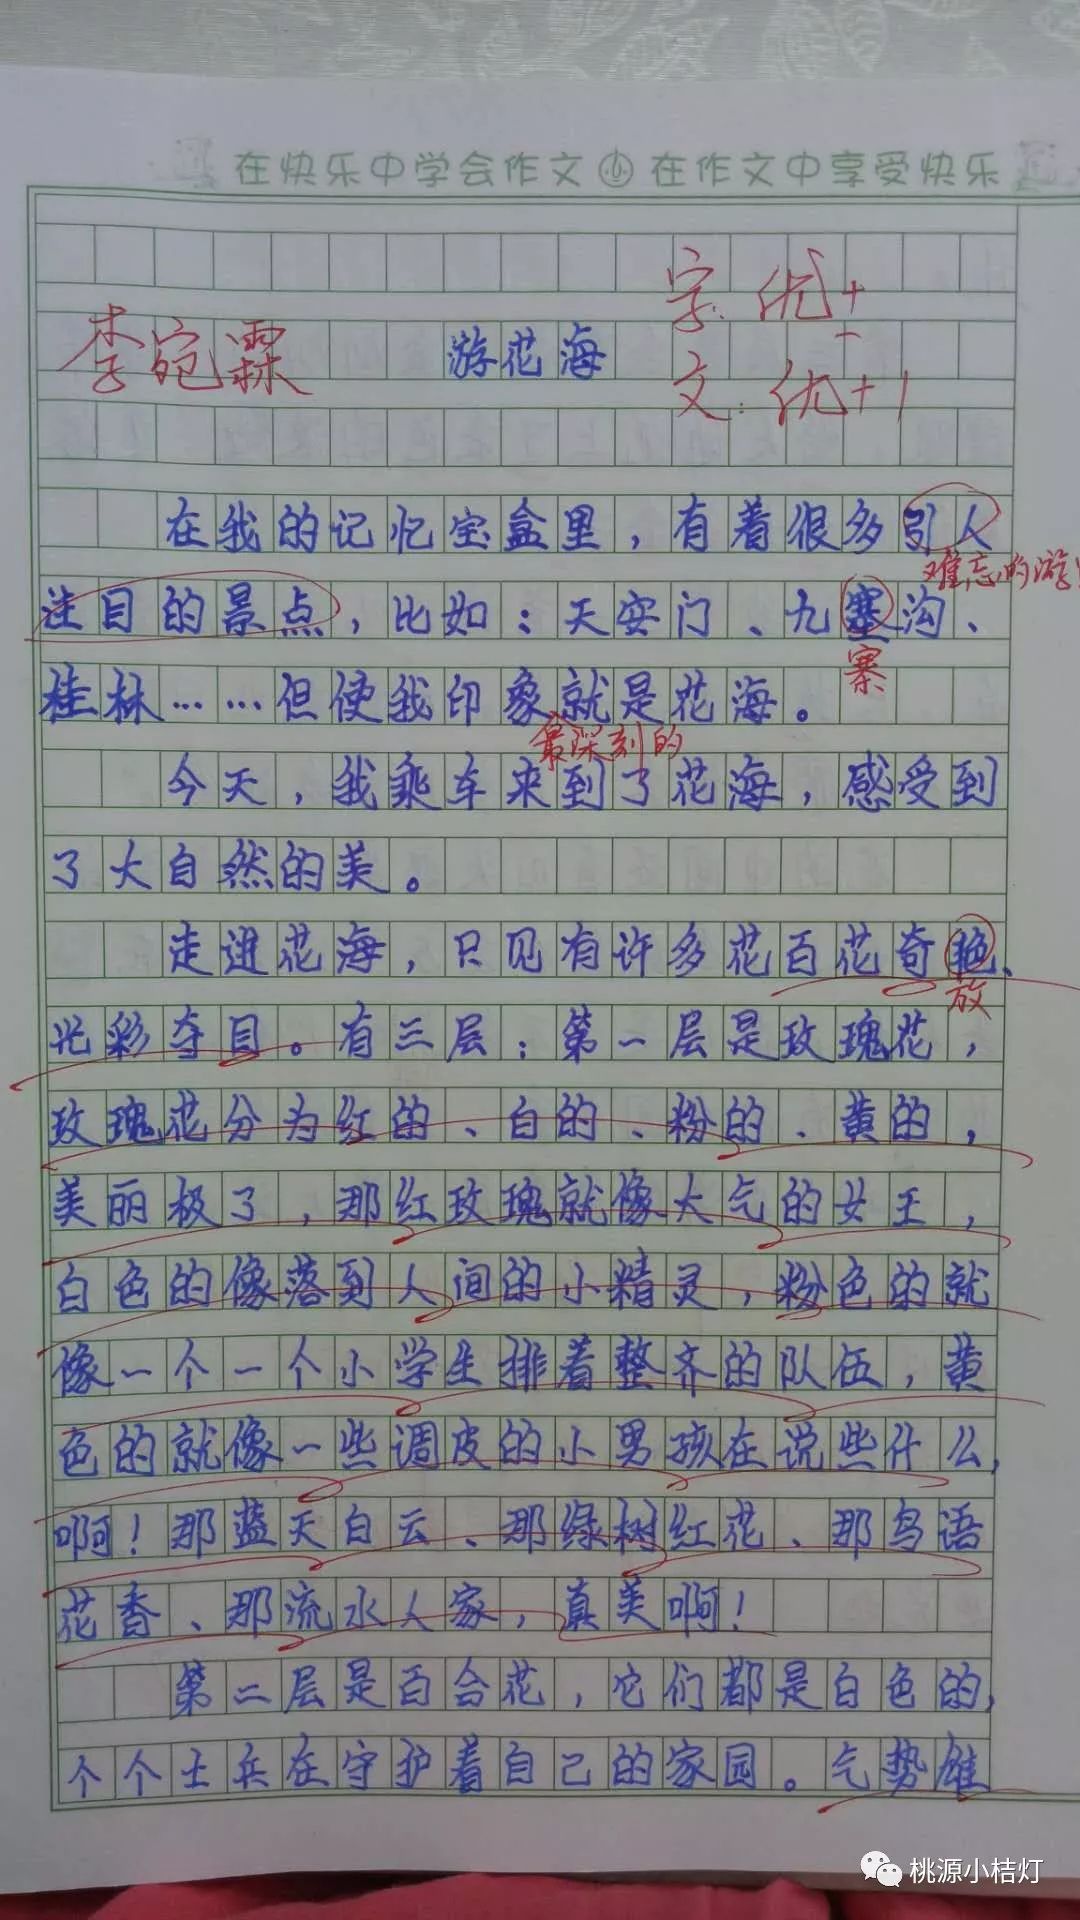 在快乐中学会作文 在作文中享受快乐
字:优+
李宛霖 游花海
文:优+1
在我的记忆宝盒里，有着很多引人
难忘的游
注目的景点，比如：天安门、九塞沟、
寨
桂林……但使我印象就是花海。
最深刻的
今天，我乘车来到了花海，感受到
了大自然的美。
走进花海，只见有许多花百花奇艳、
放
光彩夺目。有三层：第一层是玫瑰花，
玫瑰花分为红的、白的、粉的、黄的，
美丽极了，那红玫瑰就像大气的女王，
白色的像落到人间的小精灵，粉色的就
像一个一个小学生排着整齐的队伍，黄
色的就像一些调皮的小男孩在说些什么，
啊！那蓝天白云、那绿树红花、那鸟语
花香、那流水人家，真美啊！
第二层是百合花，它们都是白色的，
个个士兵在守护着自己的家园。气势雄
桃源小桔灯